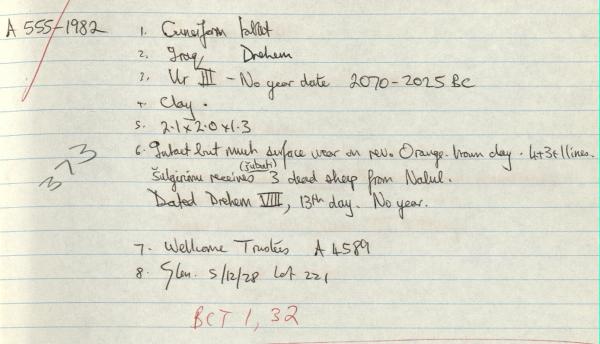 A 555-1982
1. Cuneiform tablet
2. Iraq, Drehem
3. Ur III - No year date 2070-2025 BC
4. Clay.
5. 2.1 x 2.0 x 1.3
6. Intact but much surface wear on rev. Orange-brown clay. 4+3+1 lines.
(šubati)
Šulgirimu receives 3 dead sheep from Nalul.
Dated Drehem VIII, 13th day. No year.
373
7. Wellcome Trustees A 4589
8. Glen. 5/12/28 Lot 221
BCT 1, 32